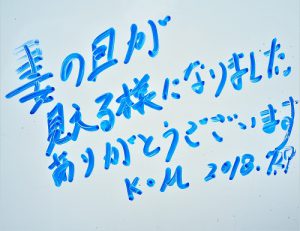 妻の目が
見える様になりました。
ありがとうございます
K.M 2018.